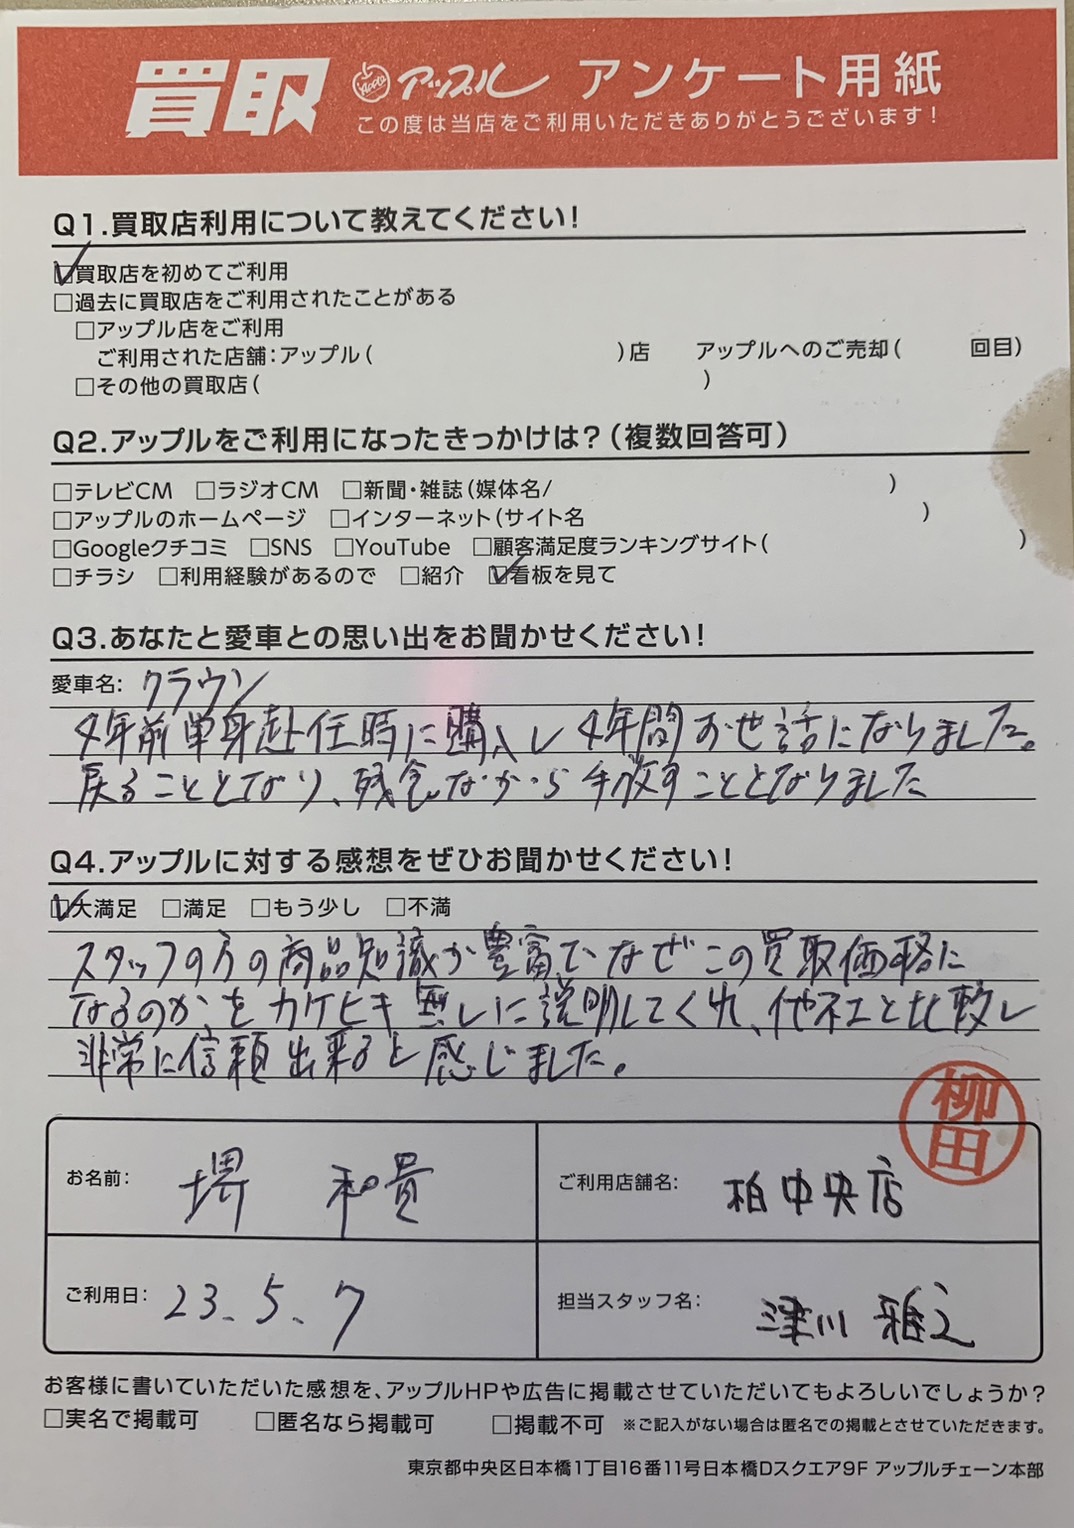 買取 Apple アップル アンケート用紙
この度は当店をご利用いただきありがとうございます！
Q1.買取店利用について教えてください！
☑買取店を初めてご利用
□過去に買取店をご利用されたことがある
□アップル店をご利用
ご利用された店舗：アップル（ ）店 アップルへのご売却（ 回目）
□その他の買取店（ ）
Q2.アップルをご利用になったきっかけは？（複数回答可）
□テレビCM □ラジオCM □新聞・雑誌（媒体名/ ）
□アップルのホームページ □インターネット（サイト名 ）
□Googleクチコミ □SNS □YouTube □顧客満足度ランキングサイト（ ）
□チラシ □利用経験があるので □紹介 ☑看板を見て
Q3.あなたと愛車との思い出をお聞かせください！
愛車名：クラウン
4年前単身赴任時に購入し4年間お世話になりました。
戻ることとなり、残念ながら手放すこととなりました
Q4.アップルに対する感想をぜひお聞かせください！
☑大満足 □満足 □もう少し □不満
スタッフの方の商品知識が豊富で、なぜこの買取価格に
なるのか、をカケヒキ無しに説明してくれ、他社と比較し
非常に信頼出来ると感じました。
柳田
お名前： 堺 和貴
ご利用店舗名： 柏中央店
ご利用日： 23.5.7
担当スタッフ名： 津川 雅之
お客様に書いていただいた感想を、アップルHPや広告に掲載させていただいてもよろしいでしょうか？
□実名で掲載可 □匿名なら掲載可 □掲載不可 ※ご記入がない場合は匿名での掲載とさせていただきます。
東京都中央区日本橋1丁目16番11号日本橋Dスクエア9F アップルチェーン本部